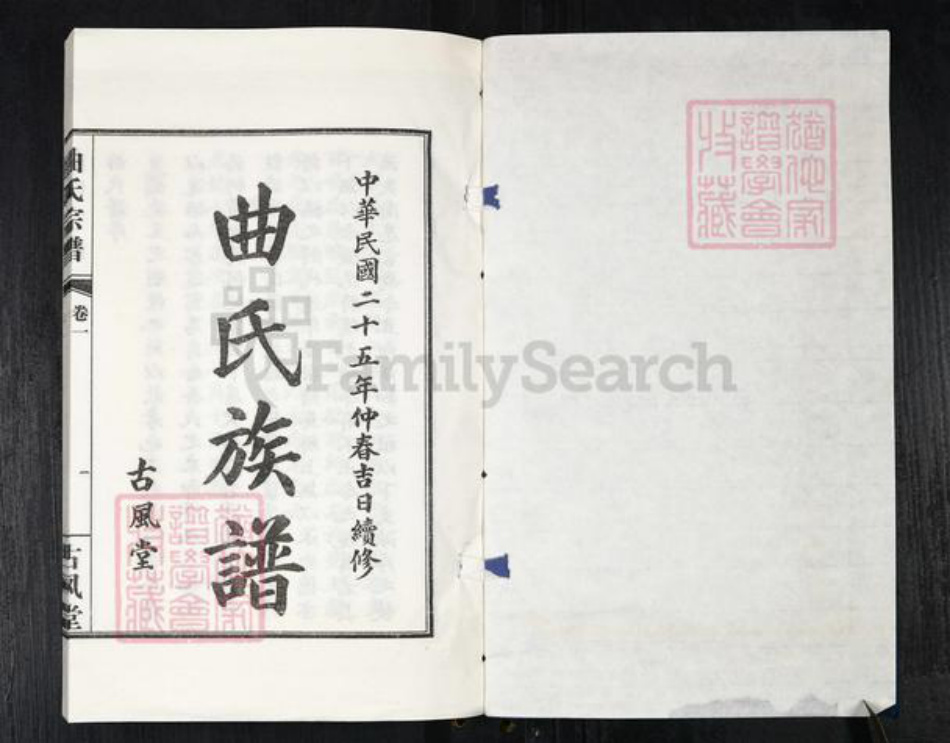 中華民國二十五年仲春吉日續修
曲氏族譜
古風堂
曲氏宗譜
卷一
一
古風堂
FamilySearch
譜學會
收藏
譜學會
收藏